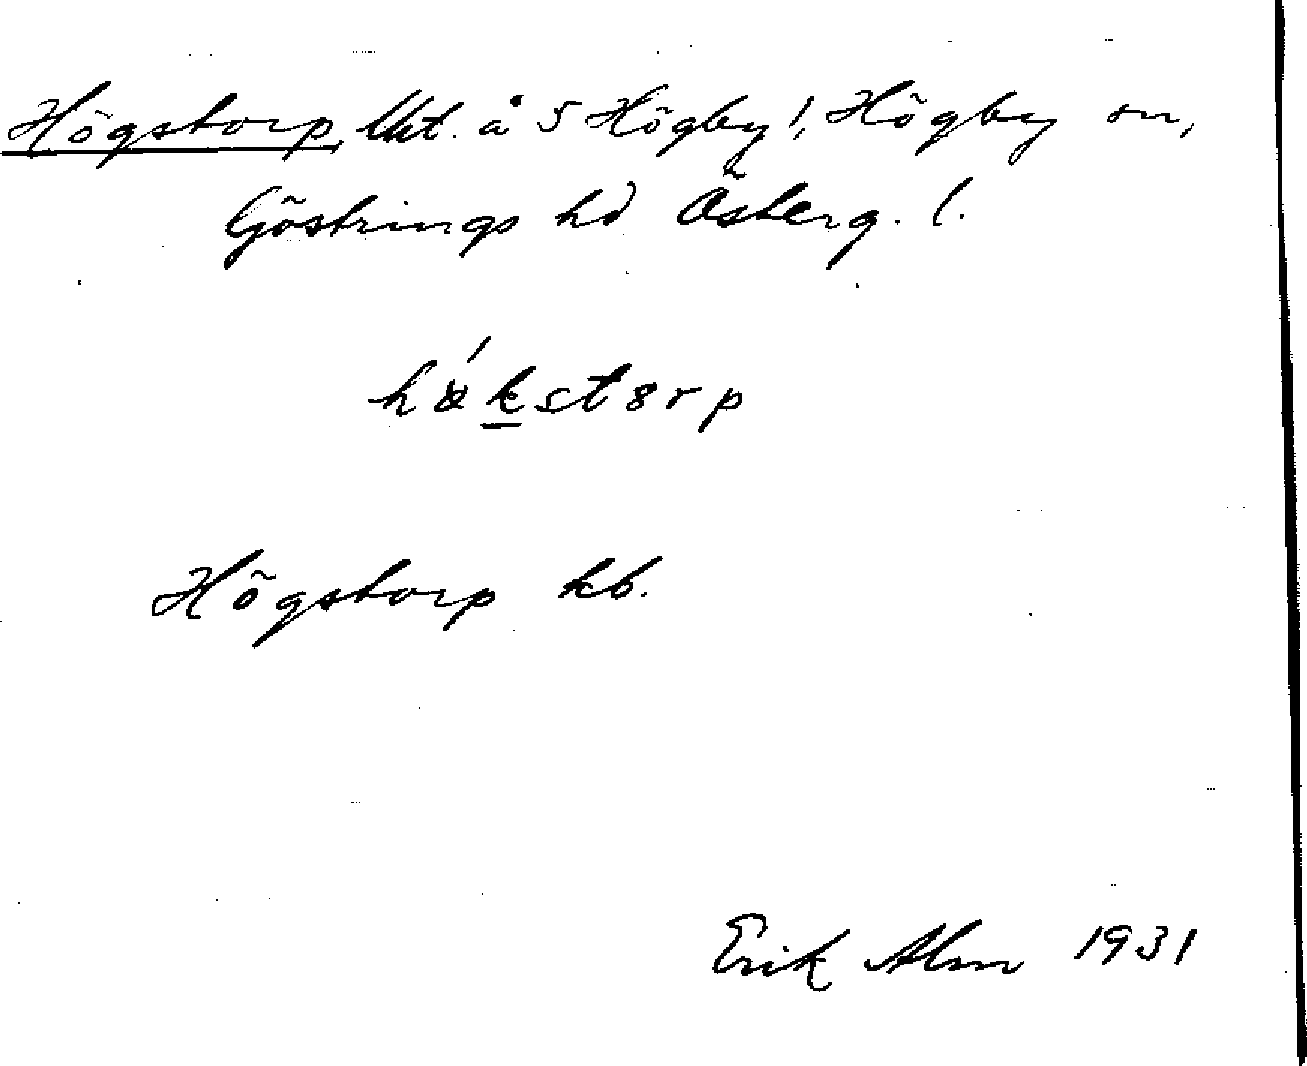 Högstorp, lht. å 5 Högby!, Högby sn,
Göstrings hd Österg. l.
hö́kstorp
Högstorp kb.
Erik Alm 1931